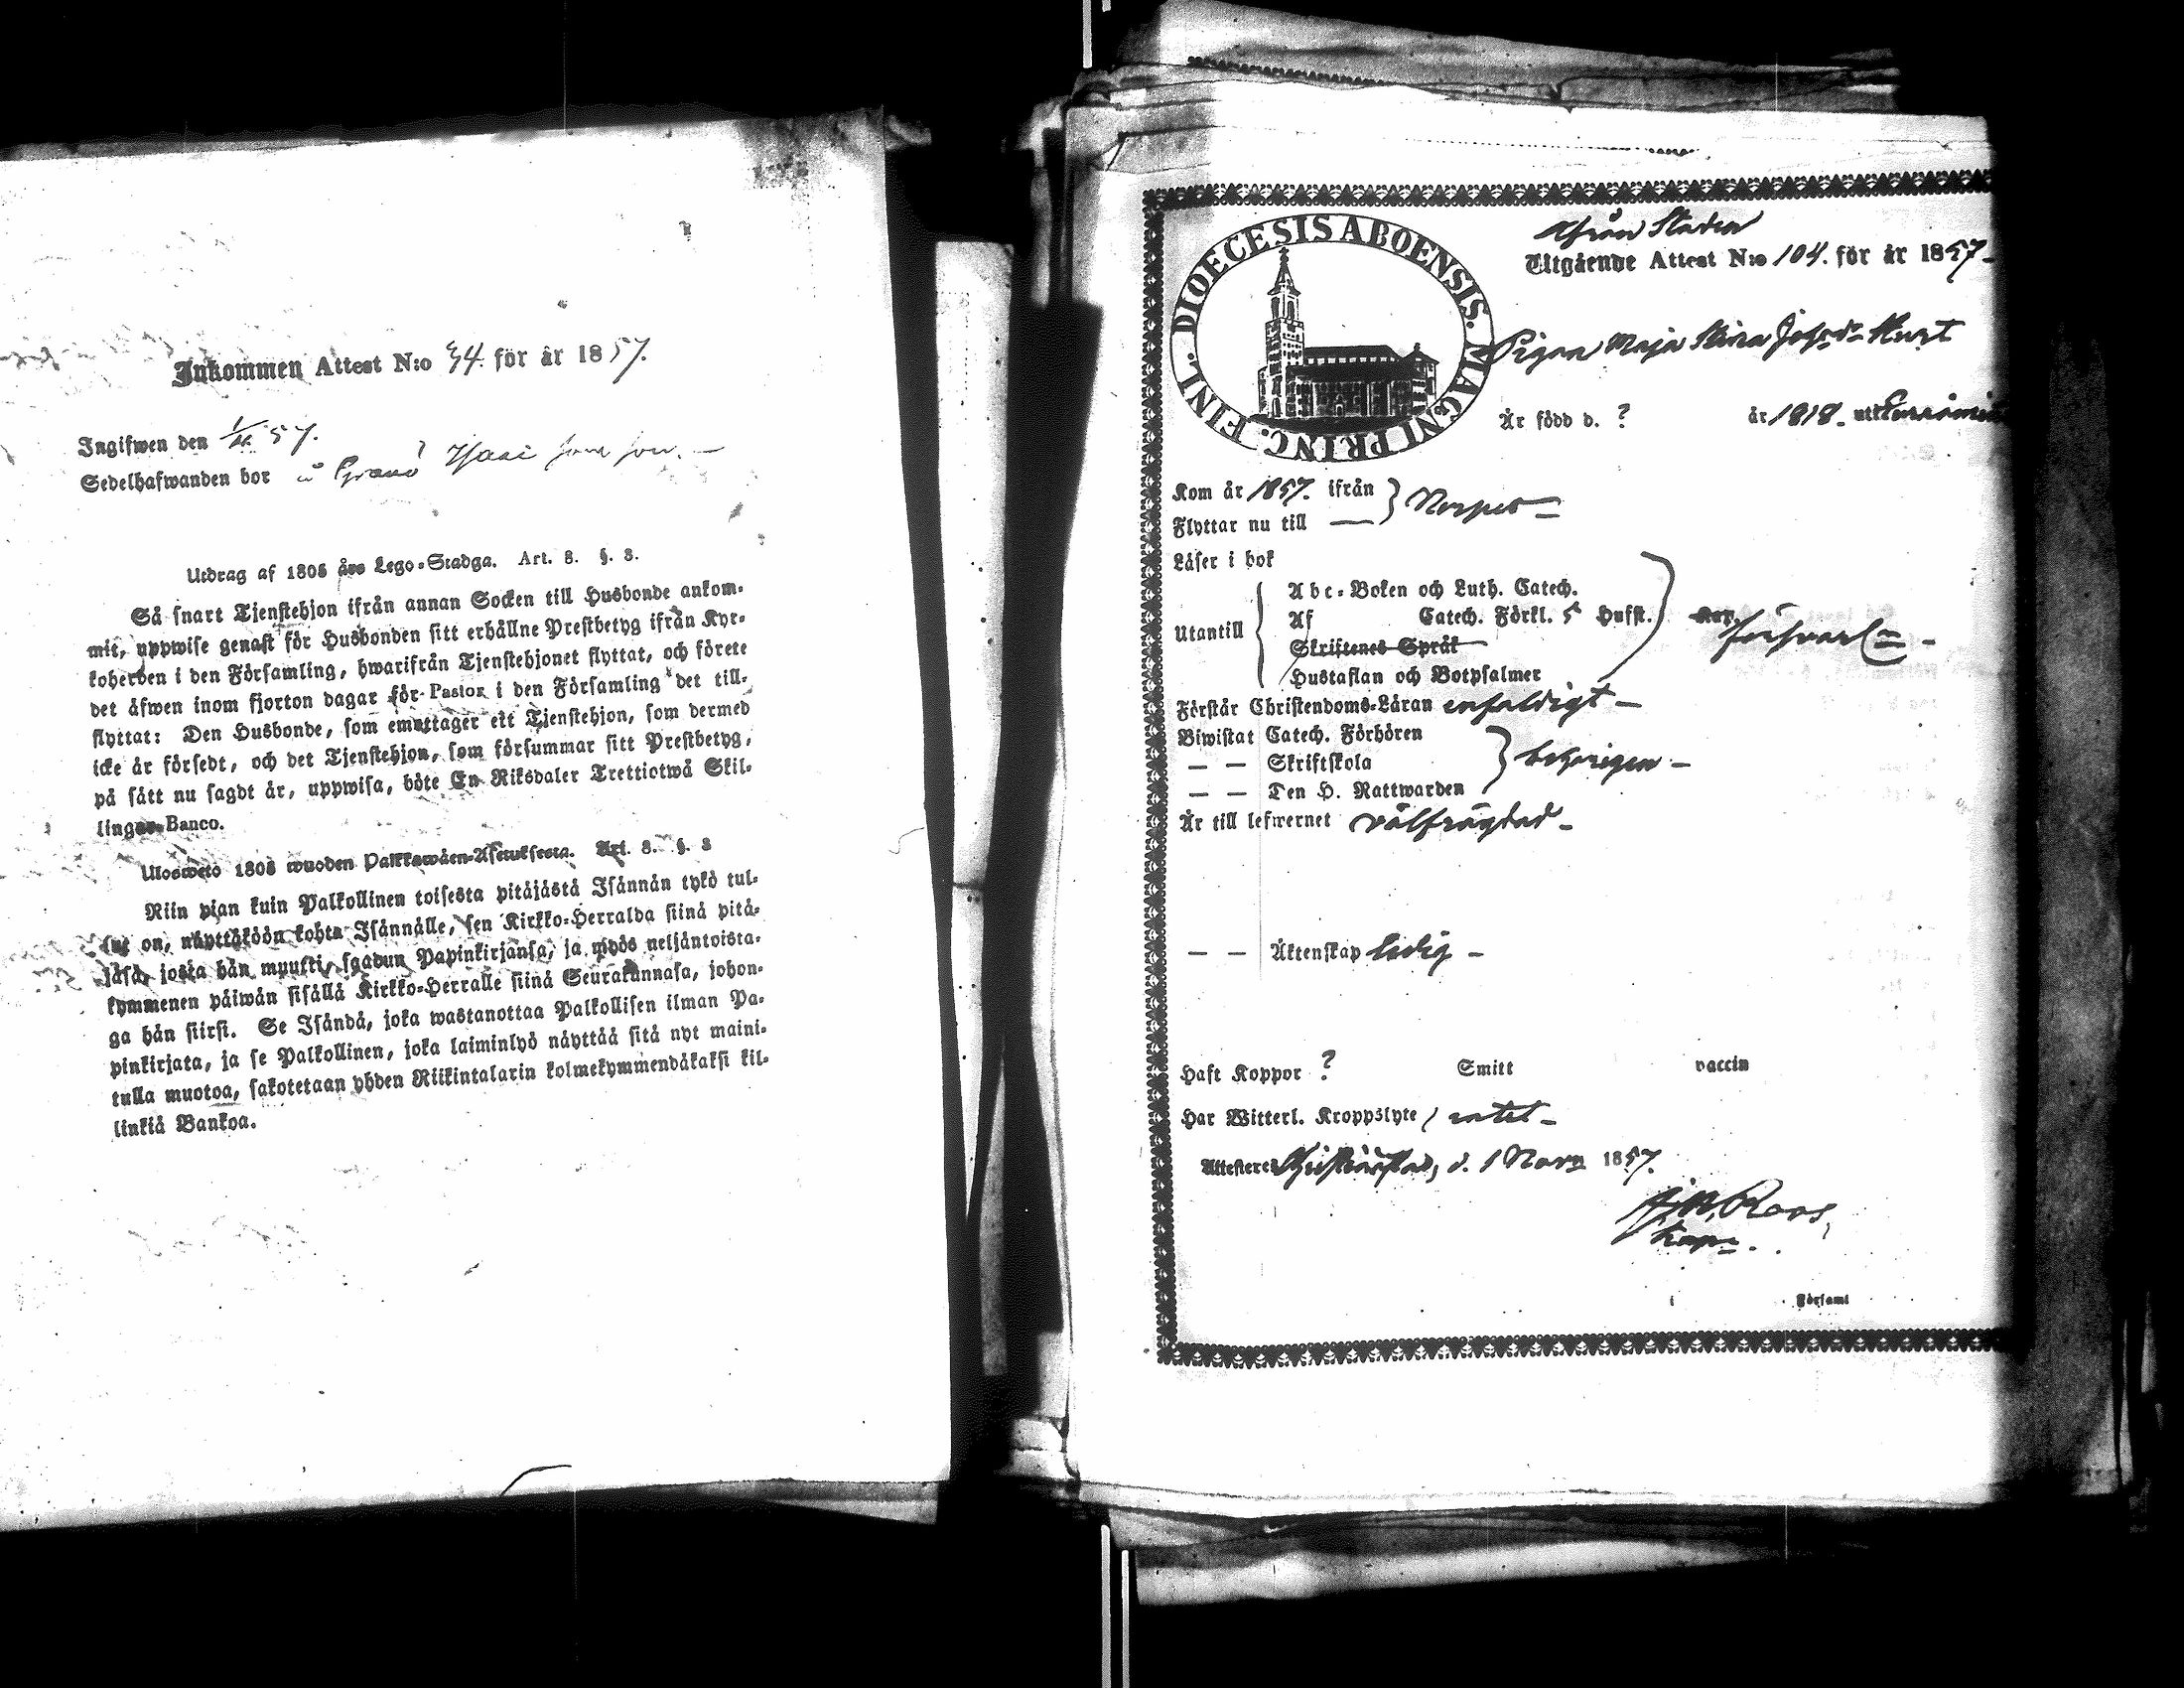 Inkommen Attest N:o 34. för år 1857.
Ingifwen den 1/11 57.
Sedelhafwanden bor å Granö
Utdrag af 1805 års Lego-Stadga. Art. 8. §. 3.
Så snart Tjenstehjon ifrån annan Socken till Husbonde ankom-
mit, uppwise genast för Husbonden sitt erhållne Prestbetyg ifrån Kyr-
koherden i den Församling, hwarifrån Tjenstehjonet flyttat, och förete
det äfwen inom fjorton dagar för Pastor i den Församling det till-
flyttat: Den Husbonde, som emottager ett Tjenstehjon, som dermed
icke är försedt, och det Tjenstehjon, som försummar sitt Prestbetyg,
på sätt nu sagdt är, uppwisa, böte En Riksdaler Trettiotwå Skil-
lingar Banco.
Ulosweto 1805 wuoden Palkkawäen-Asetuksesta. Art. 8. §. 3
Niin pian kuin Palkollinen toisesta pitäjästä Isännän tykö tul-
lut on, näyttäköön kohta Isännälle, sen Kirkko-Herralda siinä pitä-
jäsä, josta hän muutti, saadun Papinkirjansa, ja myös neljäntoista-
kymmenen päiwän sisällä Kirkko-Herralle siinä Seurakunnasa, johon-
ga hän siirsi. Se Isändä, joka wastanottaa Palkollisen ilman Pa-
pinkirjata, ja se Palkollinen, joka laiminlyö näyttää sitä nyt maini-
tulla muotoa, sakotetaan yhden Riikintalarin kolmekymmendäkaksi kil-
linkiä Bankoa.
DIOECESIS ABOENSIS. MAGNI PRINC. FINL.
Ifrån Staden
Utgående Attest N:o 104. för år 1857-
Pigan Maja Stina Johsdr Kurt
Är född d. ? år 1818. uti
Kom år 1857. ifrån } Nerpes -
Flyttar nu till —
Läser i bok
Utantill { Abc-Boken och Luth. Catech.
Af Catech. Förkl. 5 Hufst.
Skriftenes Språk
Hustaflan och Botpsalmer
försvarl. -
Förstår Christendoms-Läran enfaldigt -
Biwistat Catech. Förhören
— — Skriftskola } behörigen -
— — Den H. Nattwarden
Är till lefwernet välfrägdad -
— — Äktenskap ledig -
Haft Koppor ? Smitt vaccin
Har Witterl. Kroppslyte / intet -
Attesteres Christinestad, d. 1 Nov. 1857.
Roos,
Kapn.
i Församl